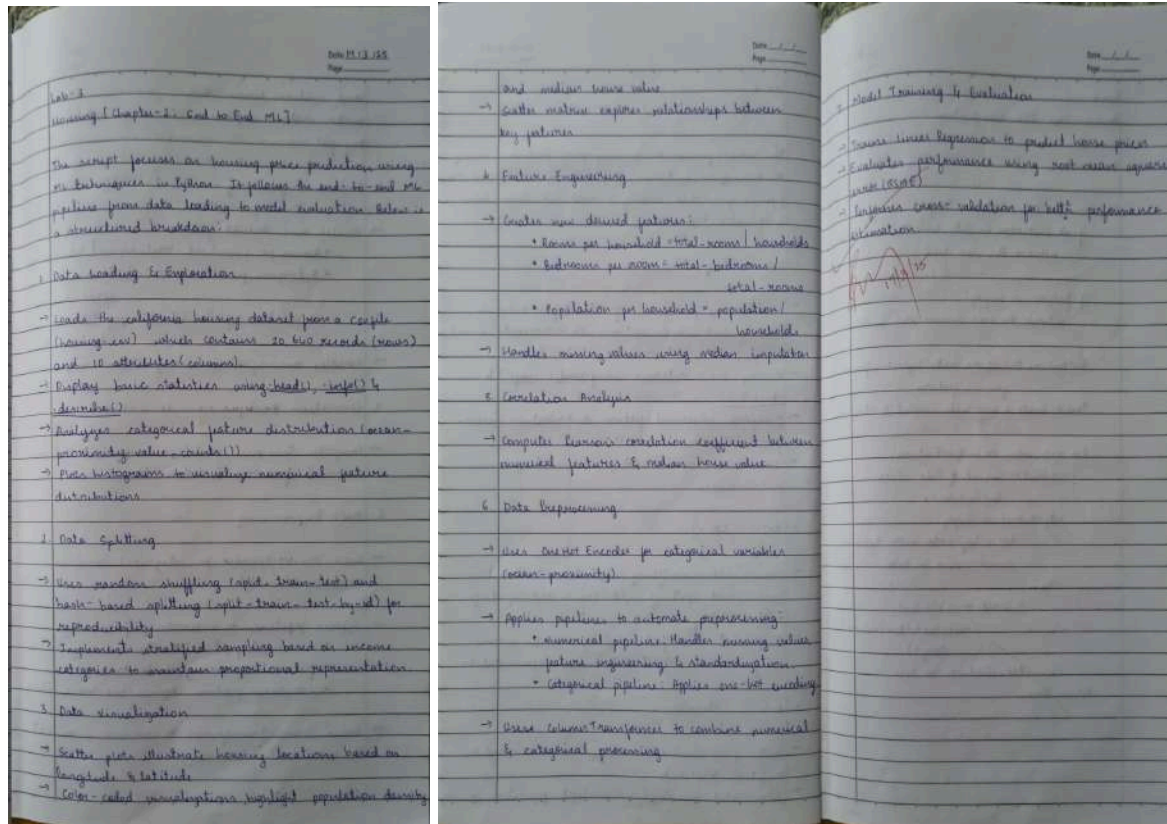 Date 11/3/25
Page
Lab-2
Housing [Chapter-2: End to End ML]
The script focuses on housing price prediction using
ML techniques in Python. It follows the end-to-end ML
pipeline from data loading to model evaluation. Below is
a structured breakdown:
1. Data Loading & Exploration
→ Loads the california housing dataset from a csv file
(housing.csv) which contains 20 640 records (rows)
and 10 attributes (columns).
→ Display basic statistics using .head(), .info() &
.describe()
→ Analyzes categorical feature distribution (ocean-
proximity value_counts())
→ Plots histograms to visualize numerical feature
distributions
2. Data Splitting
→ Uses random shuffling (split-train-test) and
hash-based splitting (split-train-test-by-id) for
reproducibility
→ Implements stratified sampling based on income
categories to maintain proportional representation
3. Data visualization
→ Scatter plots illustrate housing locations based on
longitude & latitude
→ Color-coded visualizations highlight population density
Date
Page
and median house value
→ Scatter matrix explores relationships between
key features
4. Feature Engineering
→ Creates new derived features:
• Rooms per household = total-rooms / households
• Bedrooms per room = total-bedrooms /
total-rooms
• Population per household = population/
households
→ Handles missing values using median imputation
5. Correlation Analysis
→ Computes Pearson's correlation coefficient between
numerical features & median house value
6. Data Preprocessing
→ Uses OneHot Encoder for categorical variables
(ocean-proximity)
→ Applies pipelines to automate preprocessing
• numerical pipeline: Handles missing values
feature engineering & standardization
• Categorical pipeline: Applies one-hot encoding
→ Uses Column Transformer to combine numerical
& categorical processing
Date
Page
7. Model Training & Evaluation
→ Trains Linear Regression to predict house prices
→ Evaluates performance using root mean square
error (RSME)
→ Performs cross-validation for better performance
estimation